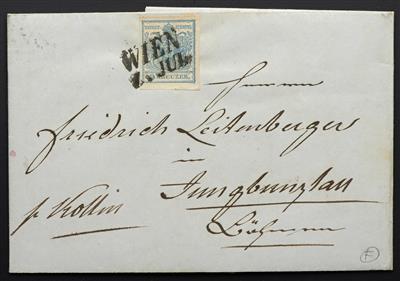 WIEN
JUL.
KREUZER
Herrn
Friedrich Leitenberger
in
Jungbunzlau
p Kollin
Böhmen